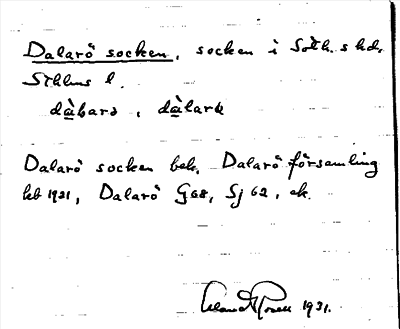 Dalarö socken, socken i Soth. s hd,
Sthlms l.
dàbarö, dàlarö
Dalarö socken bek. Dalarö församling
kb 1921, Dalarö G68, Sj 62, ek.
1931.